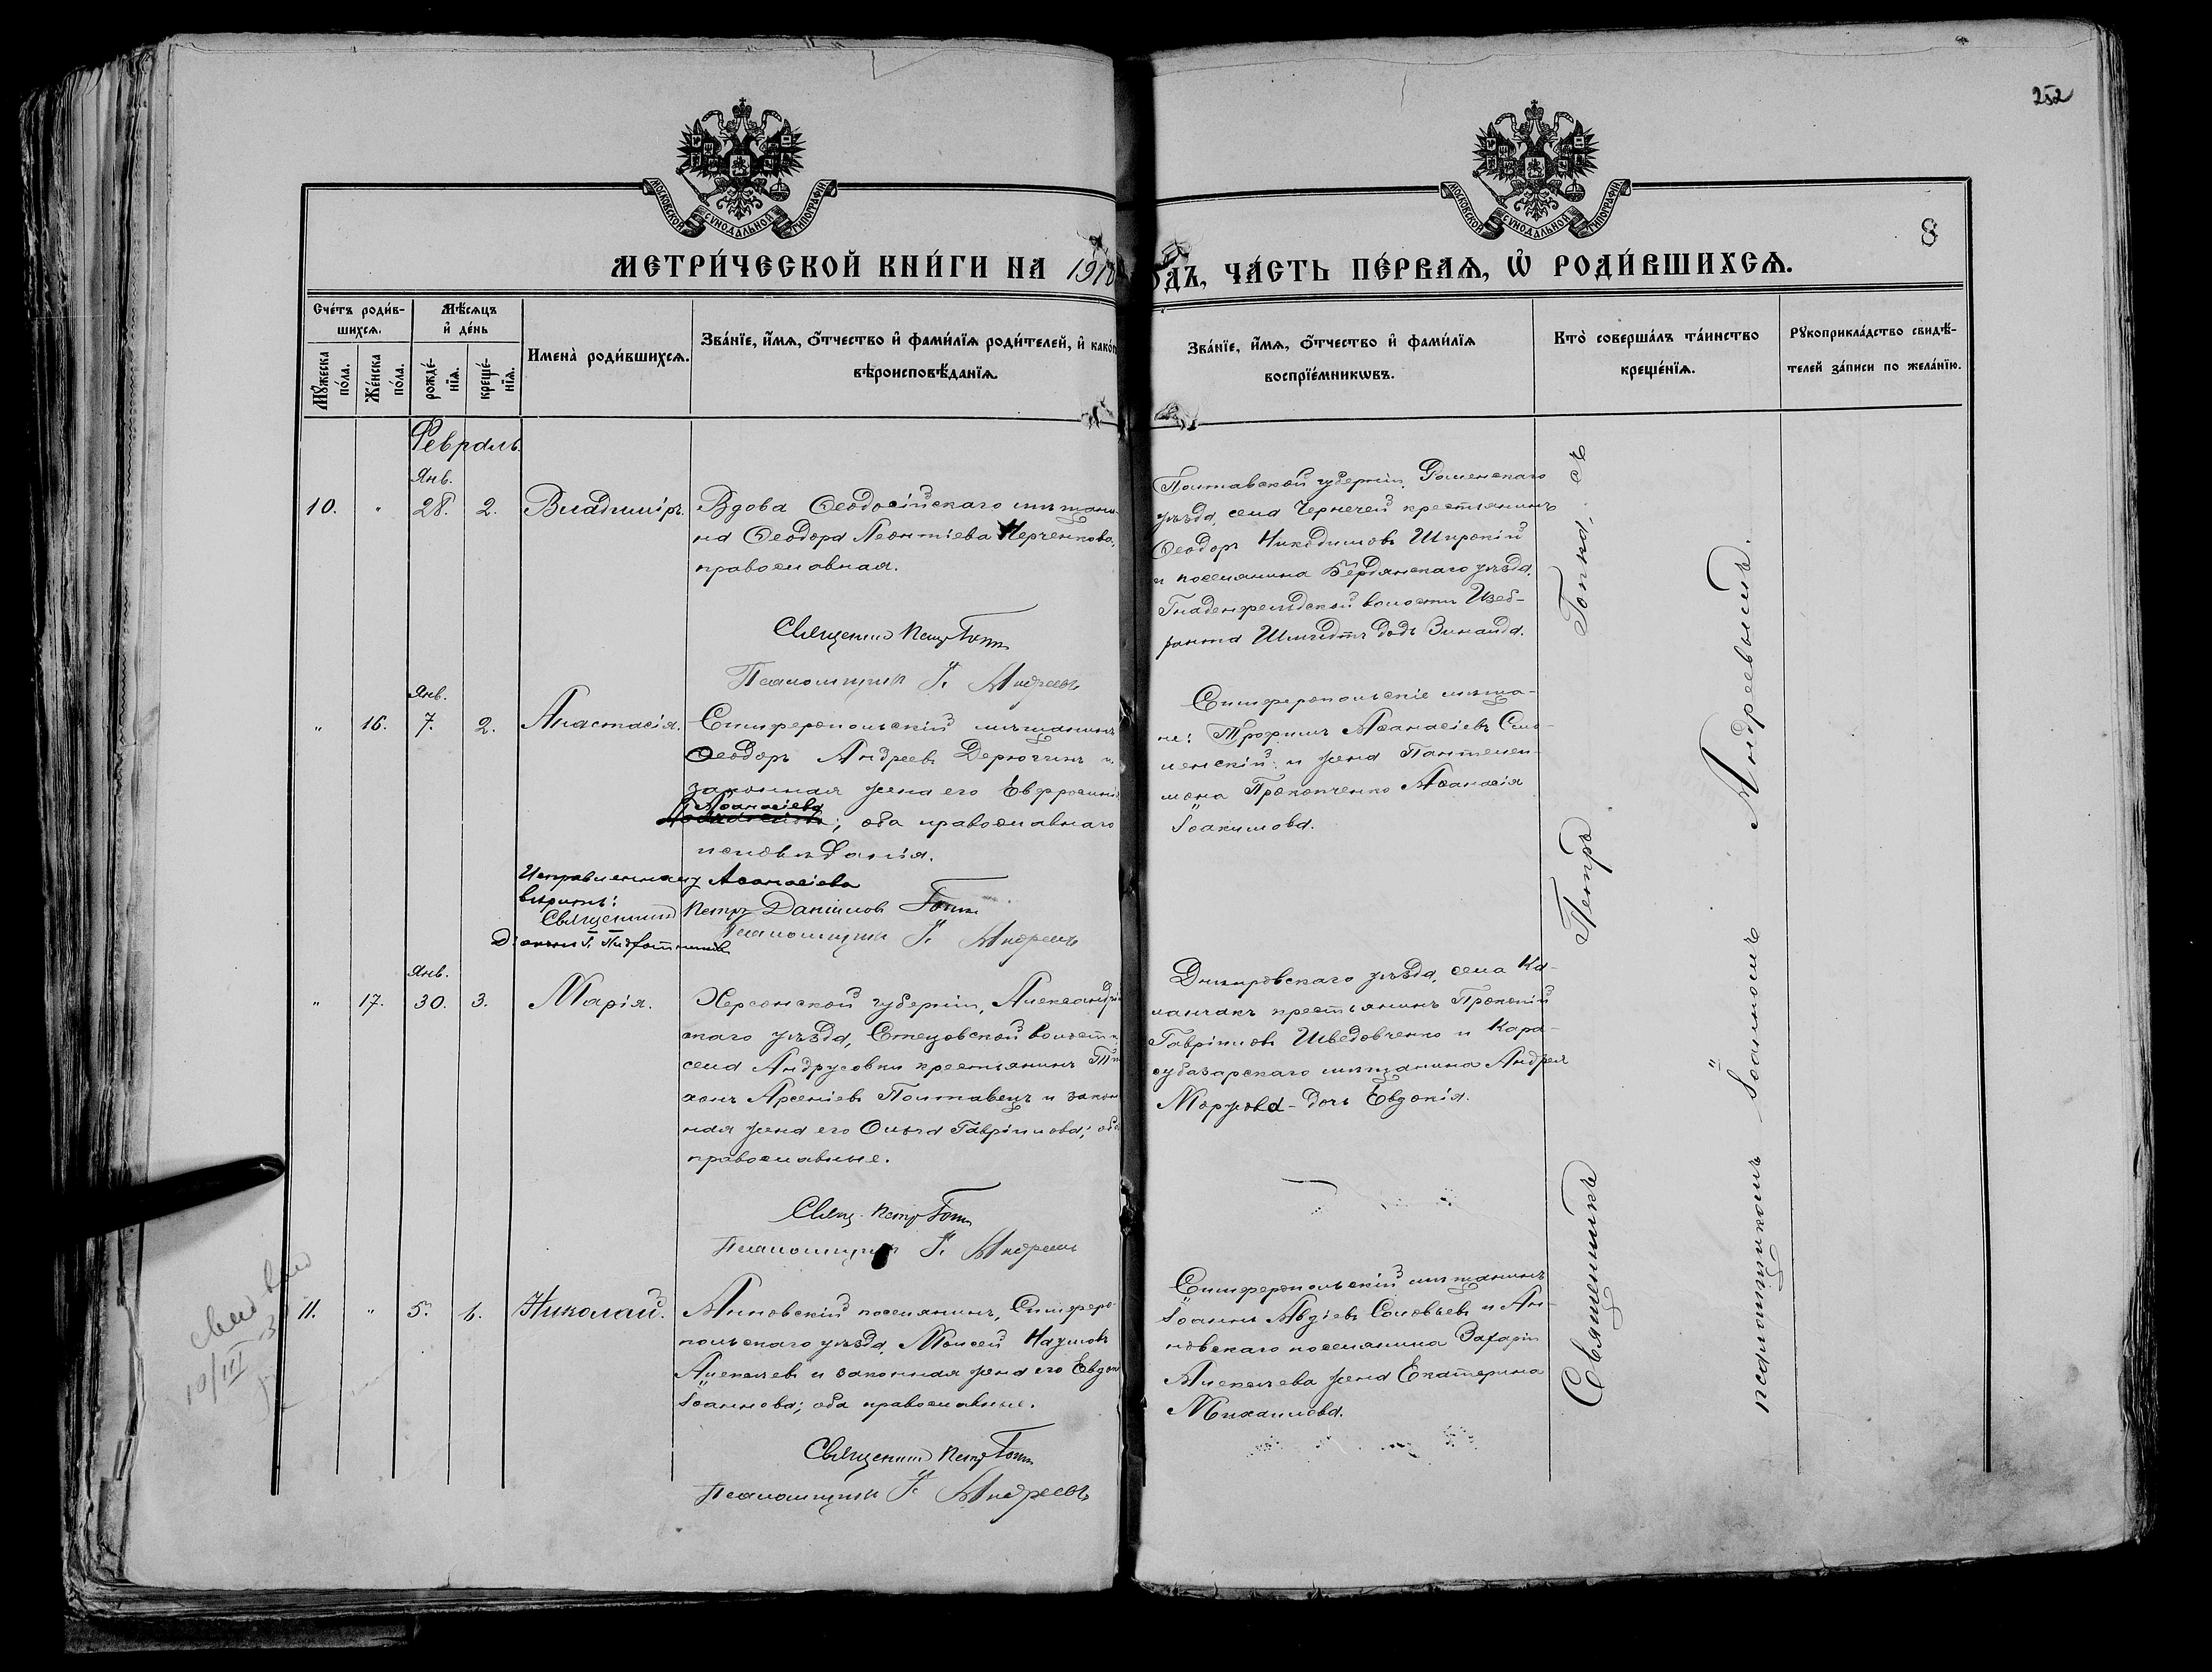 252
МОСКОВСКОЙ СѴНОДАЛЬНОЙ ТИПОГРАФІИ
МОСКОВСКОЙ СѴНОДАЛЬНОЙ ТИПОГРАФІИ
8
МЕТРИ́ЧЕСКОЙ КНИ́ГИ НА 1910
ОДЪ, ЧА́СТЬ ПЕ́РВАѦ, Ѽ РОДИ́ВШИХСѦ.
Сче́тъ роди́в-
шихсѧ.
Мꙋжеска по́ла.
Же́нска по́ла.
Мѣ́сѧцъ
и҆ де́нь
рожде́-
нїѧ.
креще́-
нїѧ.
Имена̀ роди́вшихсѧ.
Зва́нїе, и҆́мѧ, ѻ҆́тчество и҆ фами́лїѧ роди́телей, и҆ како́г
вѣроисповѣ́данїѧ
Зва́нїе, и҆́мѧ, ѻ҆́тчество и҆ фами́лїѧ
воспрїе́мникѡвъ.
Кто̀ соверша́лъ та́инство
креще́нїѧ.
Рꙋкоприкла́дство свидѣ́-
телей за́писи по жела́нїю.
Февраль.
Янв.
10. " 28. 2. Владиміръ.
Вдова Ѳеодосійскаго мѣщани-
на Ѳеодора Леонтіева Керченкова,
православная.
Священник Петр Гопка
Псаломщикъ І. Андреевъ
Полтавской губерніи, Роменскаго
уѣзда, села Чернечей крестьянинъ
Ѳеодоръ Никодимовъ Широкій
и поселянина Бердянскаго уѣзда,
Гнаденфельдской волости Изеб-
ранта Шмидтъ дочь Зинаида.
Янв.
" 16. 7. 2. Анастасія.
Симферопольскій мѣщанинъ
Ѳеодоръ Андреевъ Дерюгинъ и
законная жена его Евфросинія
Аѳанасіева
; оба православнаго
исповѣданія.
Исправленному Аѳанасіева
вѣрить:
Священник Петръ Даніиловъ Гопка
Псаломщикъ І. Андреевъ
Симферопольскіе мѣща-
не: Трофимъ Аѳанасіевъ Смо-
ленскій и жена Пантелей-
мона Прокопченко Аѳанасія
Іоакимова.
Янв.
" 17. 30. 3. Марія.
Херсонской губерніи, Александрій
скаго уѣзда, Стецовской волости
села Андрусовки крестьянинъ Ти
хонъ Арсеніевъ Полтавецъ и закон
ная жена его Ольга Гавріилова; оба
православные.
Свящ. Петр Гопка
Псаломщикъ І. Андреевъ
Днѣпровскаго уѣзда, села Ка-
ланчакъ крестьянинъ Прокопій
Гавріиловъ Шведовченко и Кара-
субазарскаго мѣщанина Андрея
дочь Евдокія.
11. " 5. 6. Николай.
Анновскій поселянинъ, Симферо-
польскаго уѣзда, Моисей Наумовъ
Алексѣевъ и законная жена его Евдок
Іоаннова; оба православные.
Священник Петр Гопка
Псаломщикъ І. Андреевъ
Симферопольскій мѣщанинъ
Іоаннъ Авдіевъ Соловьевъ и Ан-
новскаго поселянина Захарія
Алексѣева жена Екатерина
Михаилова.
Священникъ Петръ Гопка, съ
псаломщикомъ Іоанномъ Андреевымъ.
10/III